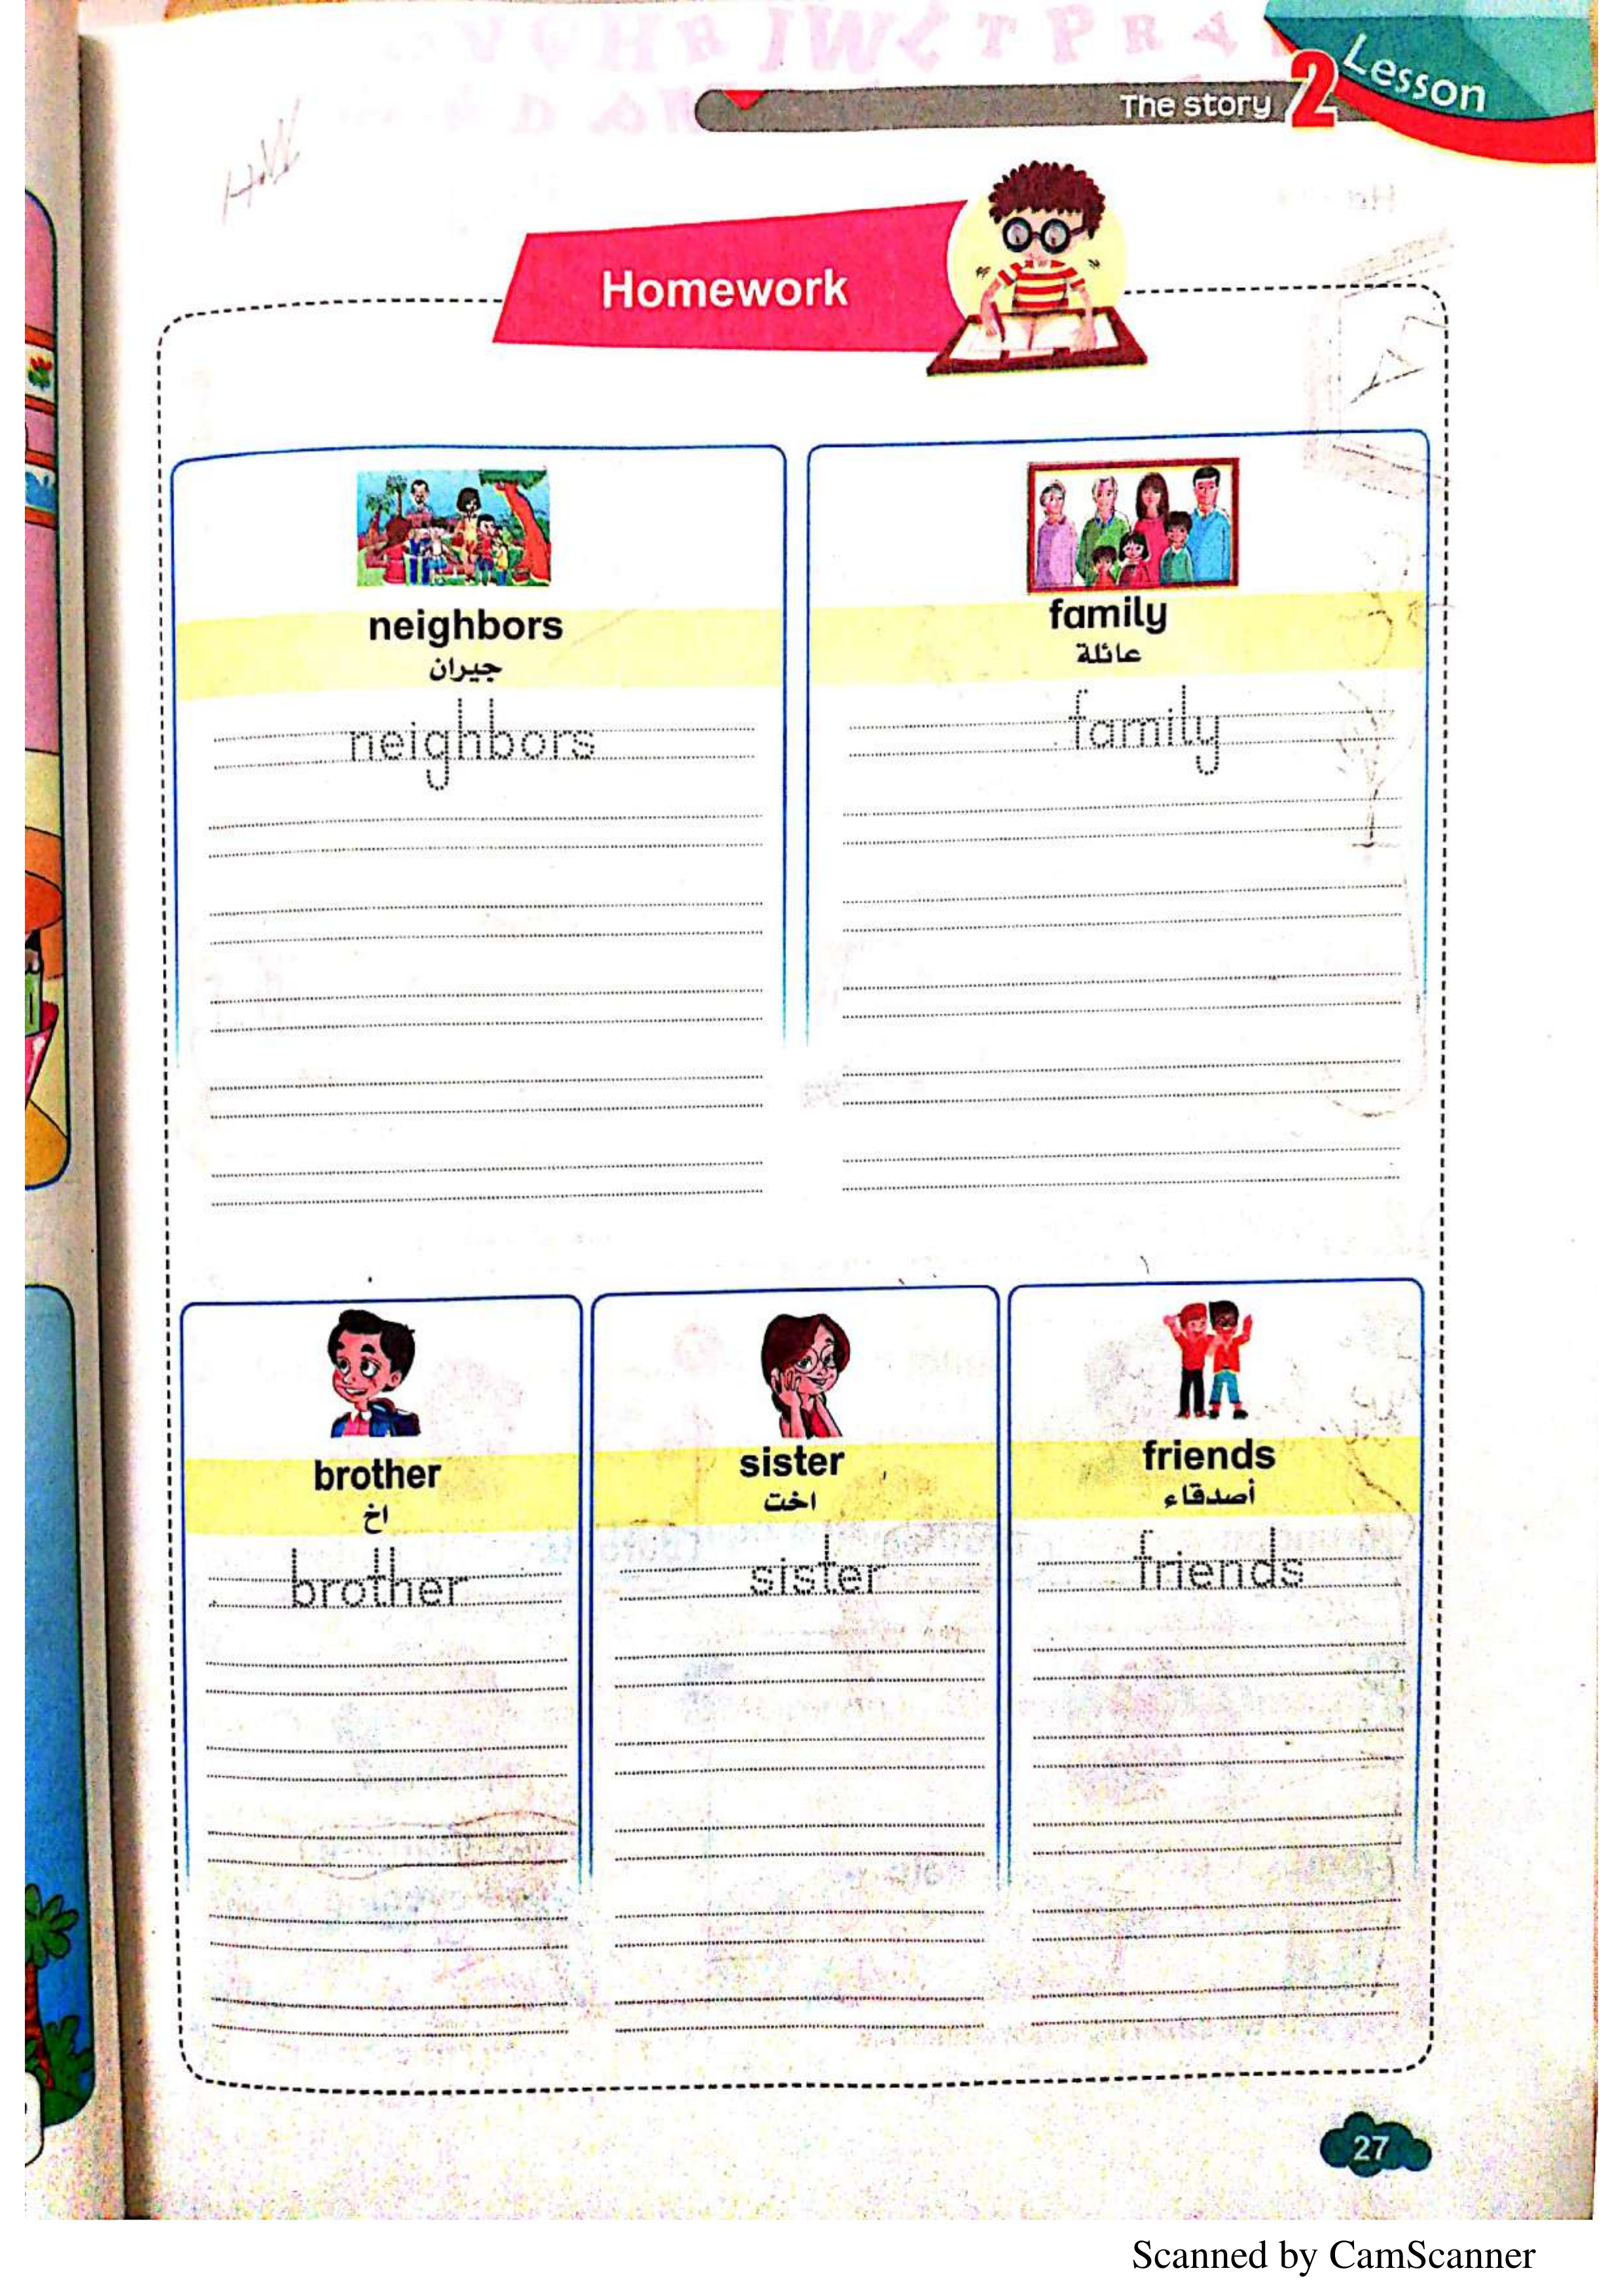 Lesson 2
The story
Homework
neighbors
جيران
neighbors
family
عائلة
family
brother
اخ
brother
sister
اخت
sister
friends
أصدقاء
friends
27
Scanned by CamScanner